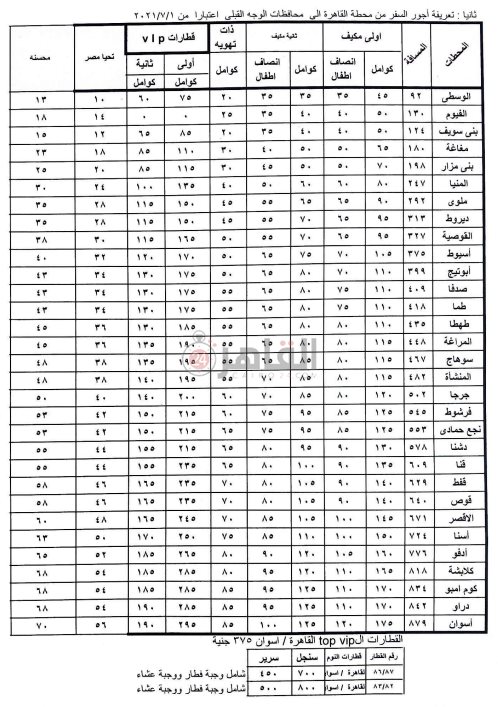 ثانيا : تعريفة أجور السفر من محطة القاهرة الى محافظات الوجه القبلى اعتبارا من ٢٠٢١/٧/١
المحطات المسافة أولى مكيف ثانية مكيف ذات تهويه قطارات v I p تحيا مصر محسنه
كوامل انصاف اطفال كوامل انصاف اطفال كوامل أولى كوامل ثانية كوامل
الوسطى ٩٢ ٤٥ ٣٥ ٣٥ ٣٥ ٢٠ ٧٥ ٦٠ ١٠ ١٣
الفيوم ١٣٠ ٥٠ ٤٠ ٤٠ ٣٥ ٢٥ ٠ ٠ ١٤ ١٨
بنى سويف ١٢٤ ٥٠ ٤٠ ٤٠ ٣٥ ٢٠ ٨٥ ٦٥ ١٢ ١٥
مغاغة ١٨٠ ٦٥ ٥٠ ٥٠ ٤٠ ٣٠ ١١٠ ٨٥ ١٨ ٢٣
بنى مزار ١٩٨ ٧٠ ٥٠ ٥٠ ٤٥ ٣٠ ١١٥ ٨٥ ٢٠ ٢٥
المنيا ٢٤٧ ٨٠ ٦٠ ٦٠ ٥٠ ٤٠ ١٣٥ ١٠٠ ٢٤ ٣٠
ملوى ٢٩٢ ٩٠ ٦٥ ٦٥ ٥٥ ٤٥ ١٥٠ ١١٥ ٢٨ ٣٥
ديروط ٣١٣ ٩٥ ٦٥ ٧٠ ٥٥ ٤٥ ١٥٠ ١١٥ ٢٨ ٣٥
القوصية ٣٢٧ ٩٥ ٦٥ ٧٠ ٥٥ ٥٠ ١٦٥ ١١٥ ٣٠ ٣٨
أسيوط ٣٧٥ ١٠٥ ٧٠ ٧٥ ٦٠ ٥٠ ١٧٠ ١٢٠ ٣٢ ٤٠
أبوتيج ٣٩٩ ١١٠ ٧٠ ٨٠ ٦٥ ٥٠ ١٧٥ ١٣٠ ٣٤ ٤٣
صدفا ٤٠٩ ١١٠ ٧٥ ٨٠ ٦٥ ٥٥ ١٧٥ ١٣٠ ٣٤ ٤٣
طما ٤١٨ ١١٠ ٧٥ ٨٠ ٦٥ ٥٥ ١٧٥ ١٣٠ ٣٤ ٤٣
طهطا ٤٣٥ ١١٠ ٨٠ ٨٠ ٦٥ ٥٥ ١٨٥ ١٣٠ ٣٦ ٤٥
المراغة ٤٤٨ ١١٥ ٨٠ ٨٠ ٦٥ ٥٥ ١٩٠ ١٣٥ ٣٦ ٤٥
سوهاج ٤٦٧ ١١٥ ٨٠ ٨٠ ٦٥ ٥٥ ١٩٥ ١٣٥ ٣٨ ٤٨
المنشأة ٤٨٢ ١١٥ ٨٠ ٨٥ ٧٠ ٥٥ ١٩٥ ١٤٠ ٣٨ ٤٨
جرجا ٥٠٢ ١٢٠ ٨٠ ٨٥ ٧٠ ٦٠ ٢٠٠ ١٤٠ ٤٠ ٥٠
فرشوط ٥٤٥ ١٢٥ ٨٥ ٩٥ ٧٥ ٦٠ ٢١٥ ١٥٠ ٤٢ ٥٣
نجع حمادى ٥٥٣ ١٢٥ ٩٠ ٩٥ ٧٥ ٦٥ ٢١٥ ١٥٠ ٤٢ ٥٣
دشنا ٥٧٨ ١٣٠ ٩٠ ٩٥ ٨٠ ٦٥ ٢٢٥ ١٥٥ ٤٤ ٥٥
قنا ٦٠٩ ١٣٥ ٩٠ ١٠٠ ٨٠ ٦٥ ٢٣٥ ١٥٥ ٤٤ ٥٥
قفط ٦٢٩ ١٤٠ ٩٠ ١٠٥ ٨٠ ٧٠ ٢٣٥ ١٦٠ ٤٦ ٥٨
قوص ٦٤٠ ١٤٠ ٩٥ ١٠٥ ٨٥ ٧٠ ٢٣٥ ١٦٥ ٤٦ ٥٨
الاقصر ٦٧١ ١٤٥ ١٠٠ ١٠٥ ٨٥ ٧٠ ٢٤٥ ١٦٥ ٤٨ ٦٠
أسنا ٧٢٤ ١٥٠ ١٠٠ ١١٠ ٨٥ ٧٥ ٢٥٠ ١٧٠ ٥٠ ٦٣
أدفو ٧٧٦ ١٦٠ ١٠٥ ١٢٠ ٩٠ ٨٠ ٢٦٥ ١٨٥ ٥٢ ٦٥
كلابشة ٨١٨ ١٦٥ ١١٠ ١٢٠ ٩٥ ٨٠ ٢٨٥ ١٨٥ ٥٤ ٦٨
كوم امبو ٨٣٤ ١٧٠ ١١٠ ١٢٠ ٩٥ ٨٠ ٢٨٥ ١٨٥ ٥٤ ٦٨
دراو ٨٤٢ ١٧٠ ١١٠ ١٢٥ ٩٥ ٨٥ ٢٨٥ ١٩٠ ٥٤ ٦٨
أسوان ٨٧٩ ١٧٥ ١٢٠ ١٢٥ ١٠٠ ٨٥ ٢٩٥ ١٩٠ ٥٦ ٧٠
القاهرة ٢٤
القطارات الtop vip القاهرة / اسوان ٣٧٥ جنية
رقم القطار قطارات النوم سنجل سرير
٨٦/٨٧ القاهرة / اسوان ٧٠٠ ٤٥٠ شامل وجبة فطار ووجبة عشاء
٨٣/٨٢ القاهرة / اسوان ٨٠٠ ٥٠٠ شامل وجبة فطار ووجبة عشاء